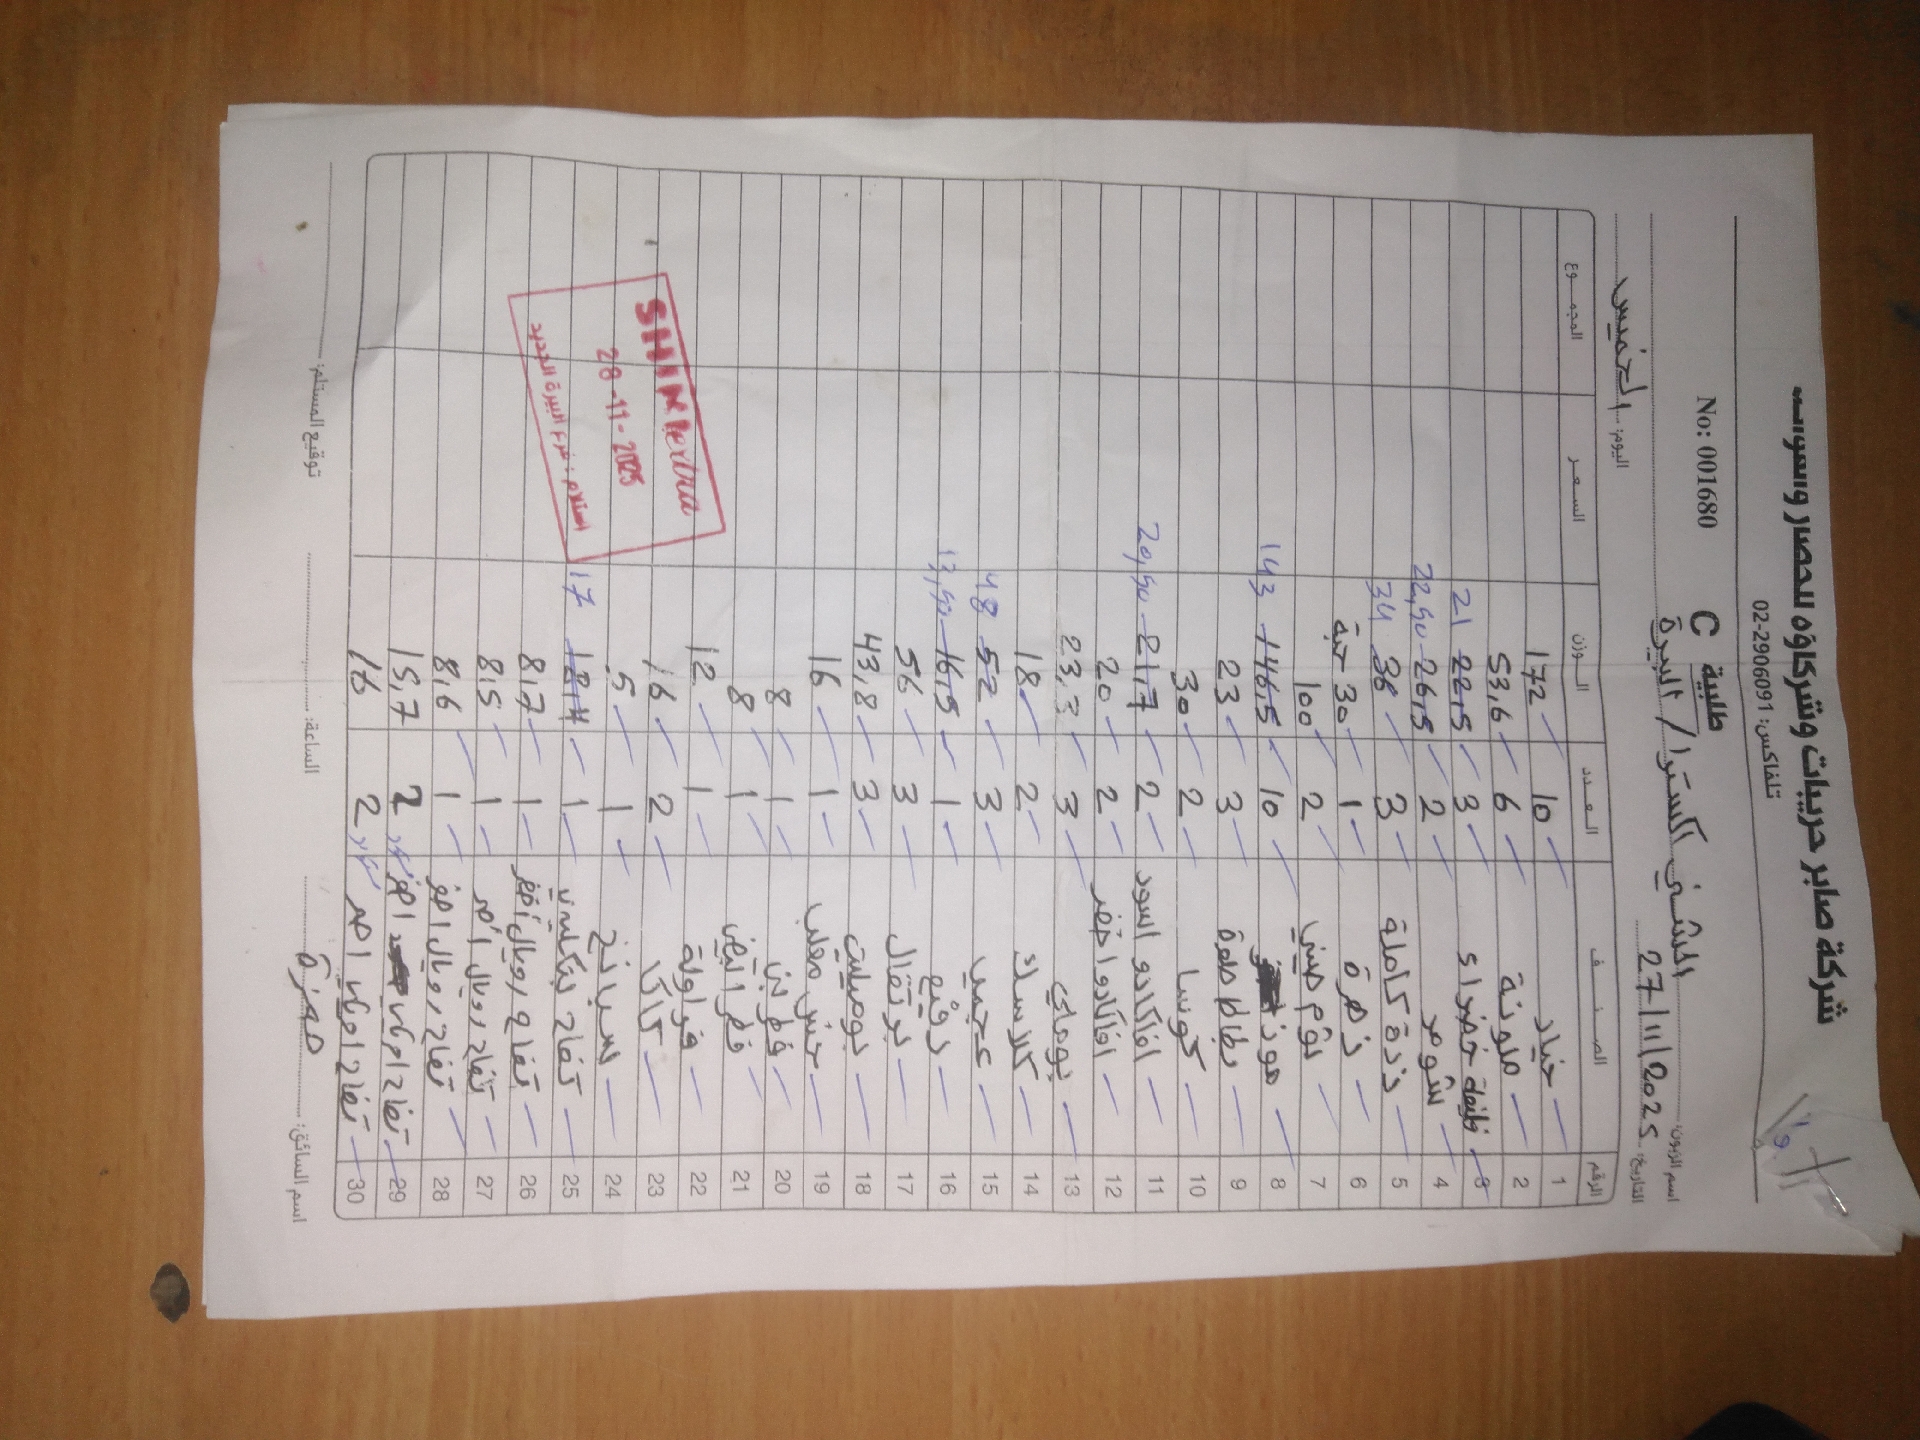 شركة صابر حريبات وشركاؤه للخضار والفواكه
تلفاكس: 02-2906091
No: 001680
طلبية C
اسم الزبون: الشني اكسترا / البيرة
التاريخ: 27/11/2025 اليوم: الخميس
الرقم الصنف العدد الوزن السعر المجموع
1 خيار 10 172
2 ملونة 6 53,6
3 خضراء 3 22,5 21
4 شومر 2 26,5 22,50
5 ذرة كاملة 3 36 34
6 زهرة 1 30 حبة
7 ثوم صيني 2 100
8 موز 10 146,5 143
9 بطاطا حلوة 3 23
10 كوسا 2 30
11 افاكادو اسود 2 21,7 20,50
12 افاكادو اخضر 2 20
13 بوملي 3 23,3
14 كلاسيك 2 18
15 عجمي 3 52 48
16 رفيع 1 16,5 13,50
17 برتقال 3 56
18 بوميليت 3 43,8
19 خس معلب 1 16
20 فطر بني 1 8
21 فطر ابيض 1 8
22 فراولة 1 12
23 كاكا 2 16
24 سبانخ 1 5
25 تفاح بنكليدي 1 18,4 17
26 تفاح رويال أخضر 1 8,7
27 تفاح رويال أحمر 1 8,5
28 تفاح رويال اصفر 1 8,6
29 تفاح اصفر 2 15,7
30 تفاح احمر 2 16
SHINIextra
28-11-2025
استلام: فرع البيرة الجديد
اسم السائق: حمزة الساعة: توقيع المستلم: